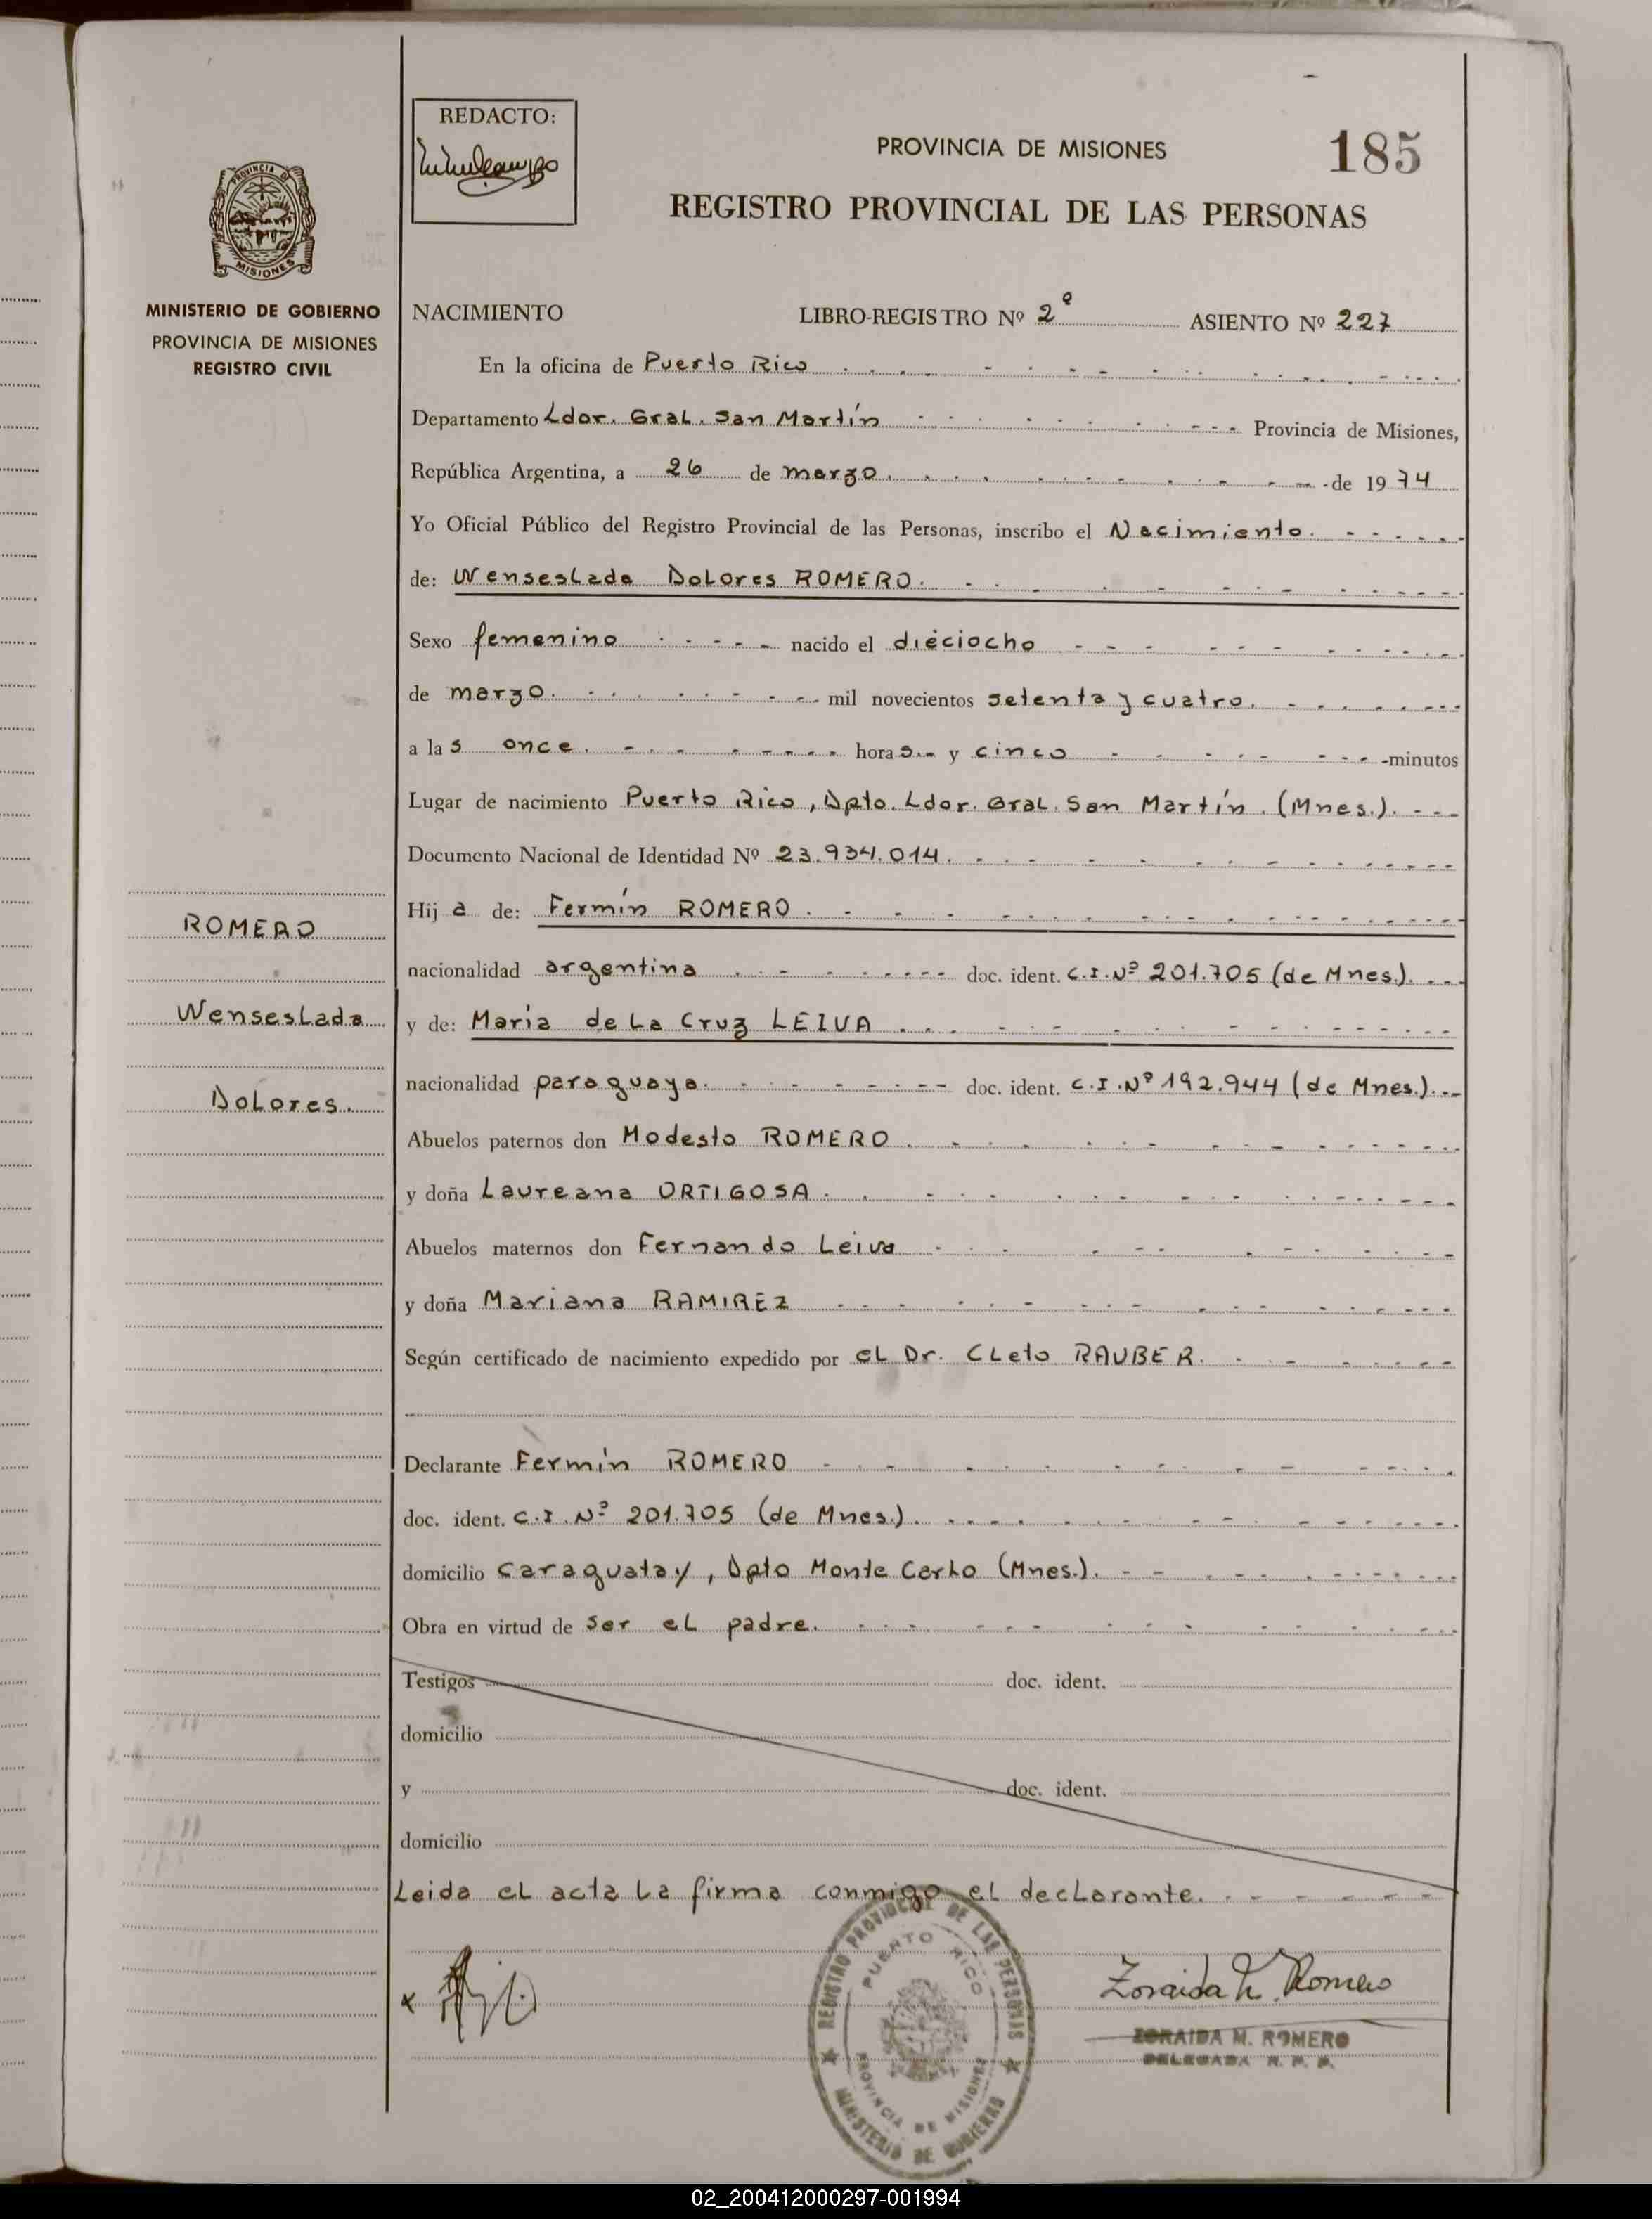 REDACTO:
PROVINCIA DE MISIONES
185
REGISTRO PROVINCIAL DE LAS PERSONAS
PROVINCIA DE
MISIONES
MINISTERIO DE GOBIERNO
PROVINCIA DE MISIONES
REGISTRO CIVIL
NACIMIENTO LIBRO-REGISTRO Nº 2º ASIENTO Nº 227
En la oficina de Puerto Rico
Departamento Ldor. Gral. San Martín Provincia de Misiones,
República Argentina, a 26 de marzo de 1974
Yo Oficial Público del Registro Provincial de las Personas, inscribo el Nacimiento.
de: Wenseslada Dolores ROMERO.
Sexo femenino nacido el dieciocho
de marzo. mil novecientos setenta y cuatro.
a las once. horas y cinco minutos
Lugar de nacimiento Puerto Rico, Dpto. Ldor. Gral. San Martín. (Mnes.).
Documento Nacional de Identidad Nº 23.934.014.
Hija de: Fermín ROMERO.
nacionalidad argentina doc. ident. C.I. Nº 201.705 (de Mnes.).
y de: María de La Cruz LEIVA
nacionalidad paraguaya. doc. ident. C.I. Nº 192.944 (de Mnes.).
Abuelos paternos don Modesto ROMERO.
y doña Laureana ORTIGOSA.
Abuelos maternos don Fernando Leiva
y doña Mariana RAMIREZ
Según certificado de nacimiento expedido por el Dr. Cleto RAUBER.
Declarante Fermín ROMERO
doc. ident. C.I. Nº 201.705 (de Mnes.).
domicilio Caraguatay, Dpto Monte Carlo (Mnes.).
Obra en virtud de ser el padre.
Testigos doc. ident.
domicilio
y doc. ident.
domicilio
Leida el acta la firma conmigo el declarante.
ROMERO
Wenseslada
Dolores.
x
REGISTRO PROVINCIAL DE LAS PERSONAS
PUERTO RICO
PROVINCIA DE MISIONES
MINISTERIO DE GOBIERNO
Zoraida M. Romero
ZORAIDA M. ROMERO
DELEGADA R. P. P.
02_200412000297-001994